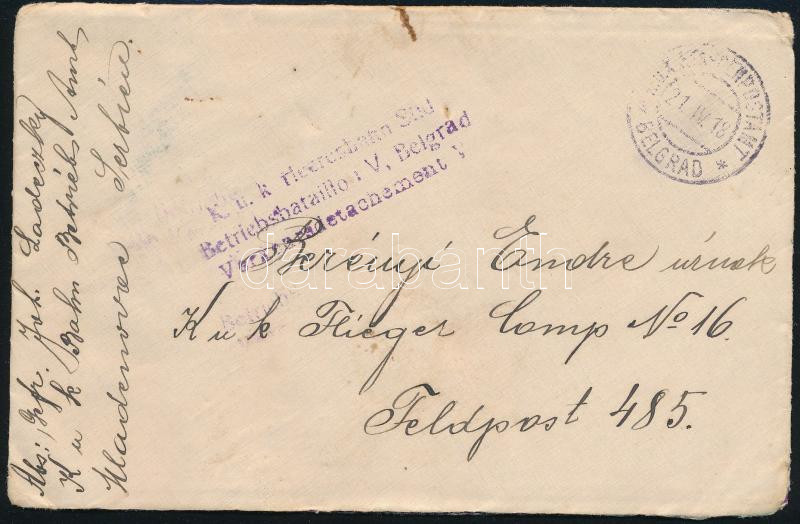 Abs: Gfr. Joh. Ladeczky
K u k Bahn Betriebs Amt,
Mladenovac Serbien.
K. u. k. Heeresbahn Süd
Betriebsbataillon V, Belgrad
K.u.K. ETAPPENPOSTAMT
21. IV. 18
* BELGRAD *
Berényi Endre úrnak
K u k Flieger Comp No 16.
Feldpost 485.
darabanth